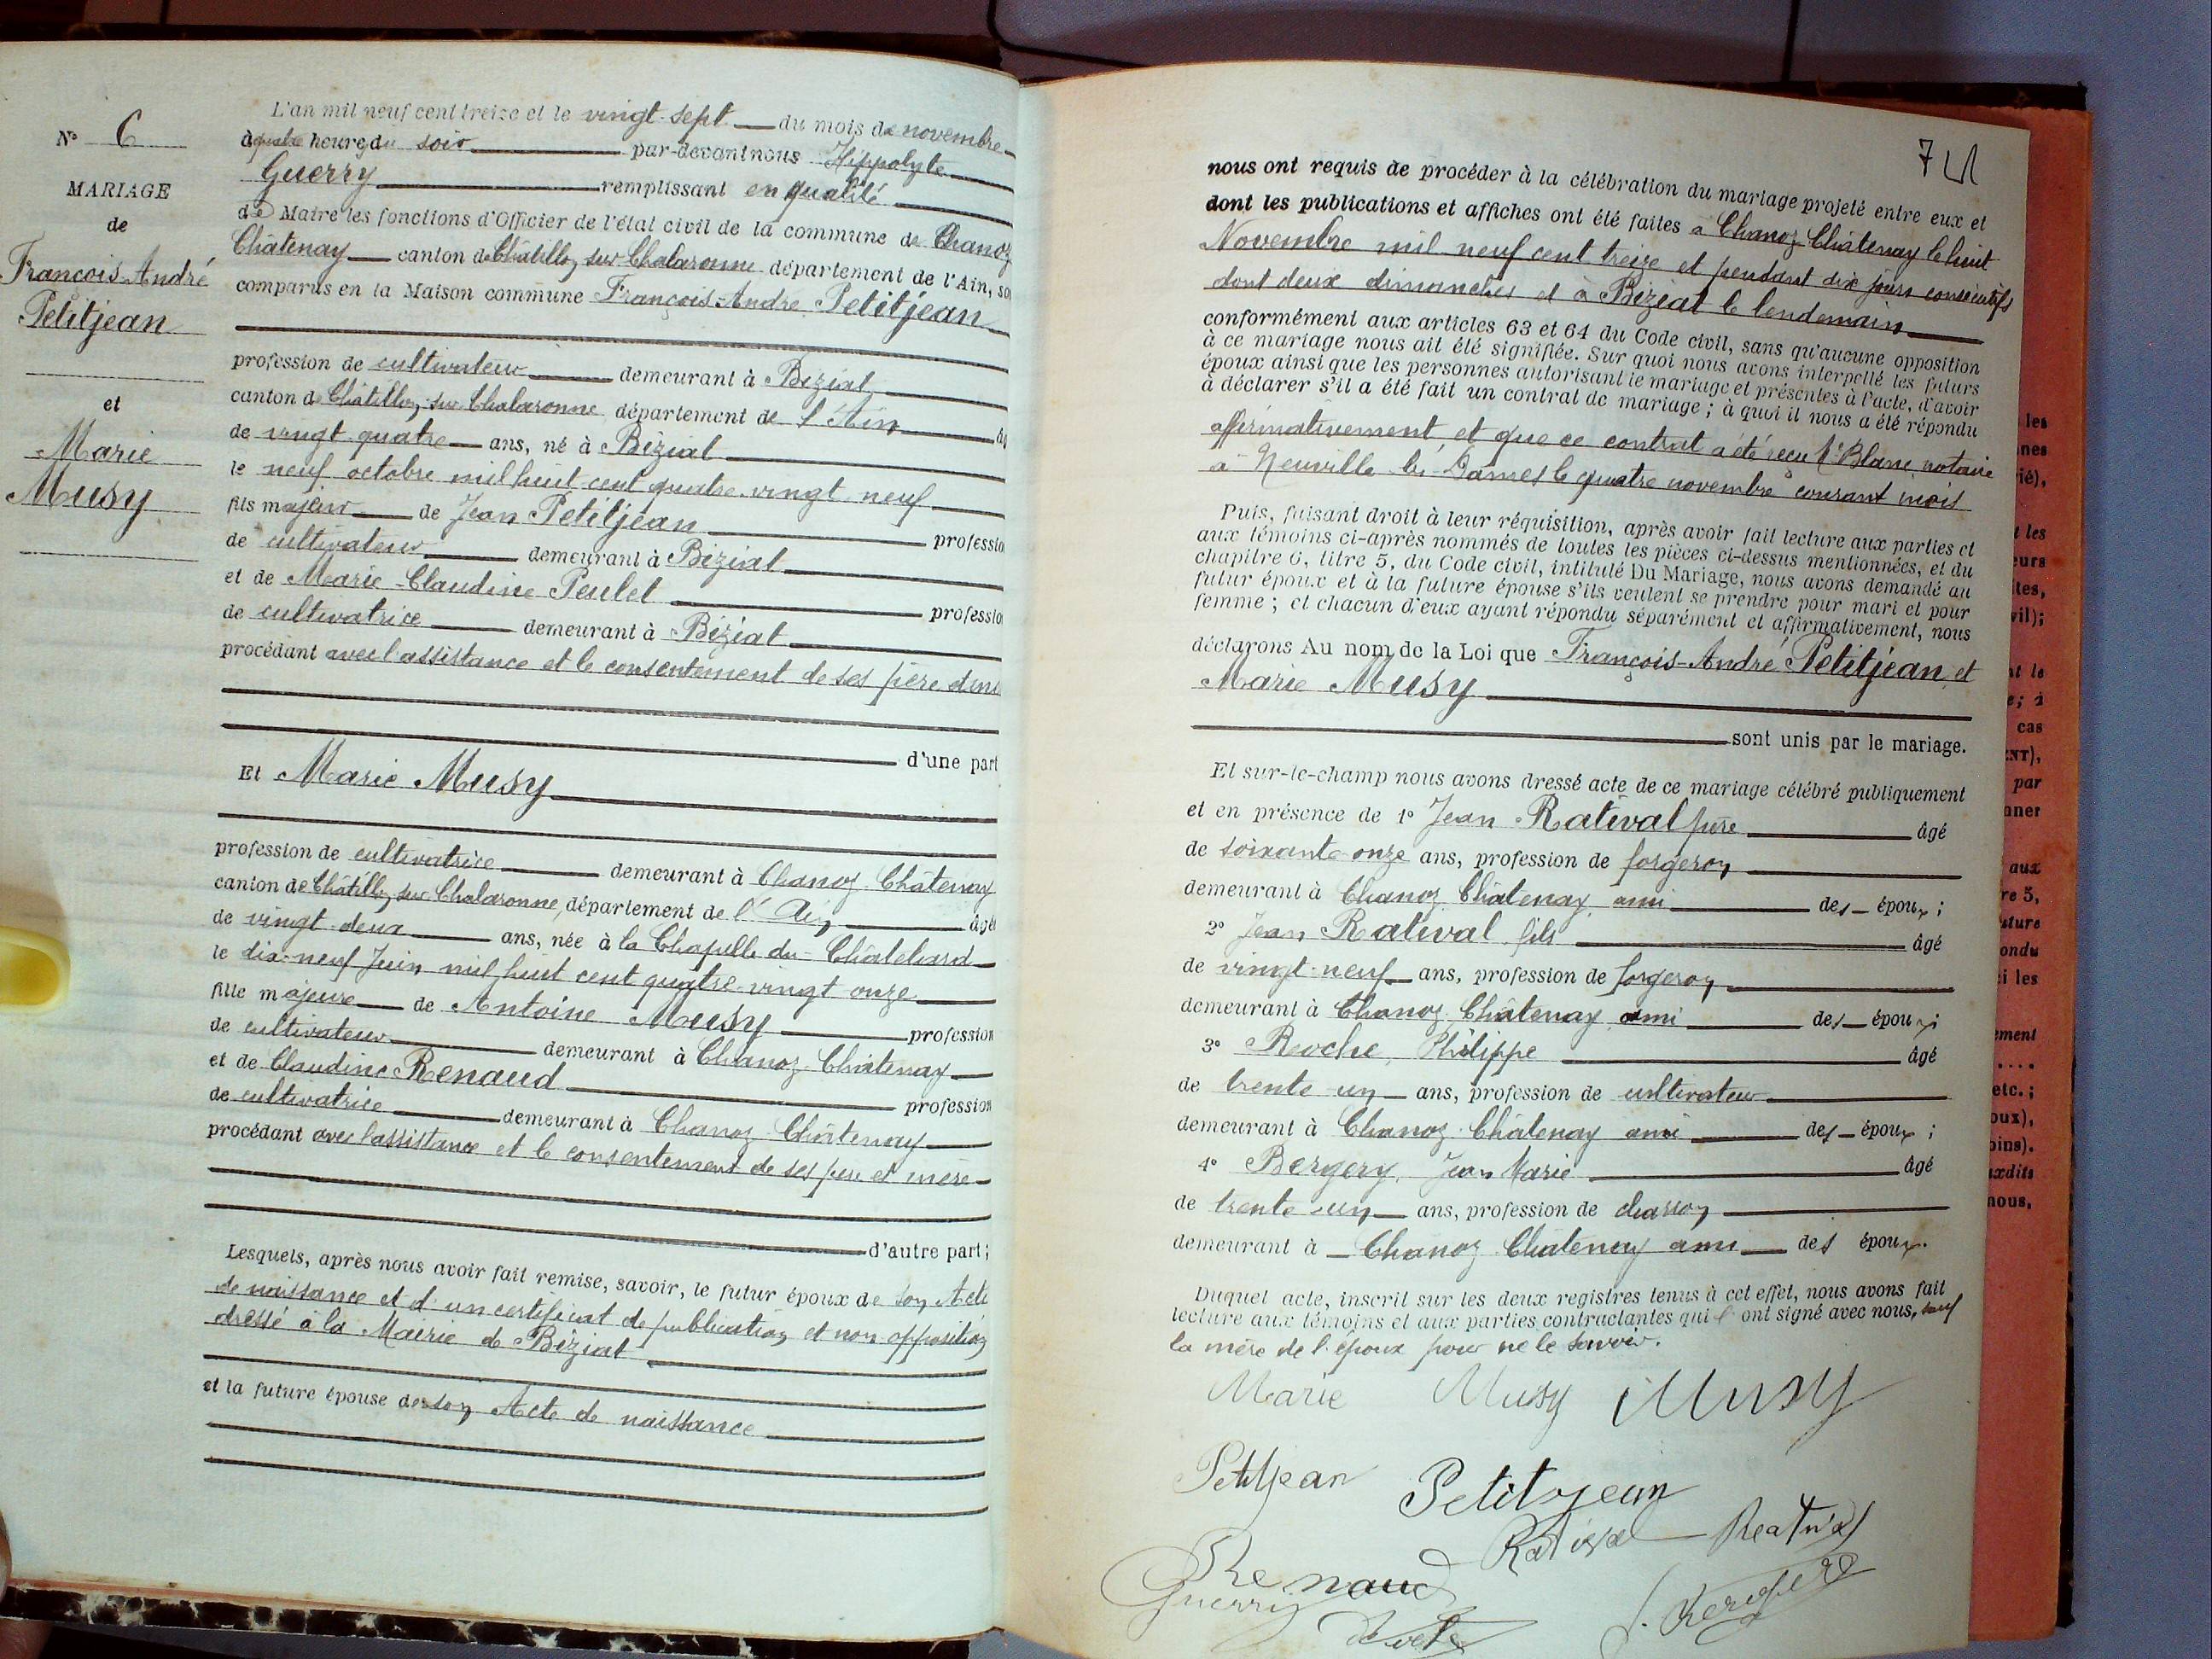 N° 6
MARIAGE
de
François-André
Petitjean
et
Marie
Musy
L'an mil neuf cent treize et le vingt-sept du mois de novembre
à quatre heures du soir par-devant nous Hippolyte
Guerry remplissant en qualité
de Maire les fonctions d'Officier de l'état civil de la commune de Chanoz
Châtenay canton de Châtillon sur Chalaronne département de l'Ain, so
comparus en la Maison commune François-Andre Petitjean
profession de cultivateur demeurant à Biziat
canton de Châtillon sur Chalaronne département de l'Ain
de vingt quatre ans, né à Biziat
le neuf octobre mil huit cent quatre-vingt neuf
fils majeur de Jean Petitjean professio
de cultivateur demeurant à Biziat
et de Marie-Claudine Peulet professio
de cultivatrice demeurant à Biziat
procédant avec l'assistance et le consentement de ses père
d'une part
Et Marie Musy
profession de cultivatrice demeurant à Chanoz Châtenay
canton de Châtillon sur Chalaronne, département de l'Ain âgé
de vingt-deux ans, née à la Chapelle du Châtelard
le dix-neuf Juin mil huit cent quatre-vingt onze
fille majeure de Antoine Musy profession
de cultivateur demeurant à Chanoz-Châtenay
et de Claudine Renaud profession
de cultivatrice demeurant à Chanoz Châtenay
procédant avec l'assistance et le consentement de ses père et mère
d'autre part;
Lesquels, après nous avoir fait remise, savoir, le futur époux de son Acte
de naissance et d'un certificat de publication et non opposition
dressé à la Mairie de Biziat
et la future épouse de son Acte de naissance
74
nous ont requis de procéder à la célébration du mariage projeté entre eux et
dont les publications et affiches ont été faites à Chanoz Châtenay le huit
Novembre mil neuf cent treize et pendant dix jours consécutifs
dont deux dimanches et à Biziat le lendemain
conformément aux articles 63 et 64 du Code civil, sans qu'aucune opposition
à ce mariage nous ait été signifiée. Sur quoi nous avons interpellé les futurs
époux ainsi que les personnes autorisant le mariage et présentes à l'acte, d'avoir
à déclarer s'il a été fait un contrat de mariage; à quoi il nous a été répondu
affirmativement et que ce contrat a été reçu Me Blanc notaire
à Neuville les Dames le quatre novembre courant mois
Puis, faisant droit à leur réquisition, après avoir fait lecture aux parties et
aux témoins ci-après nommés de toutes les pièces ci-dessus mentionnées, et du
chapitre 6, titre 5, du Code civil, intitulé Du Mariage, nous avons demandé au
futur époux et à la future épouse s'ils veulent se prendre pour mari et pour
femme; et chacun d'eux ayant répondu séparément et affirmativement, nous
déclarons Au nom de la Loi que François-André Petitjean et
Marie Musy
sont unis par le mariage.
Et sur-le-champ nous avons dressé acte de ce mariage célébré publiquement
et en présence de 1° Jean Ratival père âgé
de soixante-onze ans, profession de forgeron
demeurant à Chanoz Châtenay ami des époux;
2° Jean Ratival fils âgé
de vingt-neuf ans, profession de forgeron
demeurant à Chanoz Châtenay ami des époux;
3° Roche, Philippe âgé
de trente-un ans, profession de cultivateur
demeurant à Chanoz-Châtenay ami des époux;
4° Bergery, Jean Marie âgé
de trente-un ans, profession de charron
demeurant à Chanoz Châtenay ami des époux.
Duquel acte, inscrit sur les deux registres tenus à cet effet, nous avons fait
lecture aux témoins et aux parties contractantes qui l'ont signé avec nous, sauf
la mère de l'époux pour ne le savoir.
Marie Musy Musy
Petitjean Petitjean
Renaud
Guerry
les
nes
ié),
t les
eurs
ites,
vil);
nt le
e; à
cas
ENT),
par
nner
aux
re 5,
uture
ondu
i les
ement
....
etc.;
oux),
oins).
uxdits
nous,